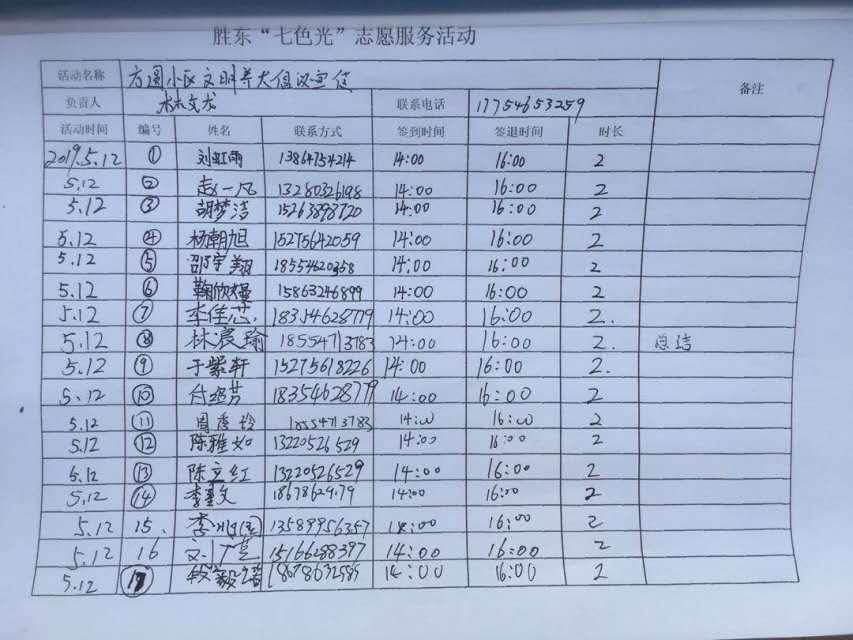 胜东“七色光”志愿服务活动
活动名称 方圆小区文明养犬倡议宣传 备注
负责人 林文龙 联系电话 17754653259
活动时间 编号 姓名 联系方式 签到时间 签退时间 时长
2019.5.12 ① 刘虹雨 13864754214 14:00 16:00 2
5.12 ② 赵一凡 13280326198 14:00 16:00 2
5.12 ③ 胡梦洁 15263898720 14:00 16:00 2
5.12 ④ 杨朝旭 15275642059 14:00 16:00 2
5.12 ⑤ 邵宇翔 18554620358 14:00 16:00 2
5.12 ⑥ 鞠欣 15863246899 14:00 16:00 2
5.12 ⑦ 李佳芯. 18354628779 14:00 16:00 2.
5.12 ⑧ 林宸瑜 18554713783 14:00 16:00 2. 总结
5.12 ⑨ 于紫轩 15275618226 14:00 16:00 2.
5.12 ⑩ 付绍芬 18354628779 14:00 16:00 2
5.12 ⑪ 周秀玲 18554713783 14:00 16:00 2
5.12 ⑫ 陈雅如 13220526529 14:00 16:00 2
5.12 ⑬ 陈立红 13220526529 14:00 16:00 2
5.12 ⑭ 14:00 16:00 2
5.12 15. 13589956357 16:00 2
5.12 16 15166288397 14:00 16:00 2
5.12 ⑰ 18678632585 14:00 16:00 2